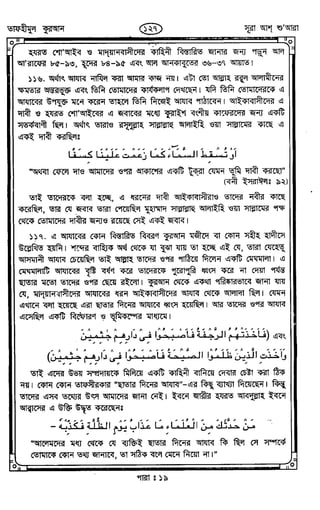 তাফহীমুল কুরআন
১২৭
সূরা আশ শু'আরা
হযরত শো'আইব ও মাদ্‌য়ানবাসীদের কাহিনী বিস্তারিত জানার জন্য পড়ুন আল
আ'রাফের ৮৫-৯৩, হূদের ৮৪-৯৫ এবং আল আনকাবুতের ৩৬-৩৭ আয়াত।
১১৬. অর্থাৎ আযাব নাযিল করা আমার কাজ নয়। এটা তো আল্লাহ রব্বুল আলামীনের
ক্ষমতার অন্তর্ভুক্ত এবং তিনি তোমাদের কার্যকলাপ দেখছেন। যদি তিনি তোমাদেরকে এ
আযাবের উপযুক্ত মনে করেন তাহলে তিনি নিজেই আযাব পাঠাবেন। আইকাবাসীদের এ
দাবী ও হযরত শো'আইবের এ জবাবের মধ্যে কুরাইশ বংশীয় কাফেরদের জন্যও একটি
সতর্কবাণী ছিল। অর্থাৎ তারাও রসূলুল্লাহ সাল্লাল্লাহু আলাইহি ওয়া সাল্লামের কাছে এ
একই দাবী করছিলঃ
أَوْ تُسْقِطَ السَّمَاءَ كَمَا زَعَمْتَ عَلَيْنَا كِسَفًا
"অথবা ফেলে দাও আমাদের ওপর আকাশের একটি টুকরা যেমন তুমি দাবী করছো"
(বনী ইসরাঈলঃ ৯২)
তাই তাদেরকে বলা হচ্ছে, এ ধরনের দাবী আইকাবাসীরাও তাদের নবীর কাছে
করেছিল, তার যে জবাব তারা পেয়েছিল মুহাম্মাদ সাল্লাল্লাহু আলাইহি ওয়া সাল্লামের পক্ষ
থেকে তোমাদের দাবীর জন্যও রয়েছে সেই একই জবাব।
১১৭. এ আযাবের কোন বিস্তারিত বিবরণ কুরআন মজীদে বা কোন সহীহ হাদীসে
উল্লেখিত হয়নি। শব্দের বাহ্যিক অর্থ থেকে যা বুঝা যায় তা হচ্ছে এই যে, তারা যেহেতু
আসমানী আযাব চেয়েছিল তাই আল্লাহ তাদের ওপর পাঠিয়ে দিলেন একটি মেঘমালা। এ
মেঘমালাটি আযাবের বৃষ্টি বর্ষণ করে তাদেরকে পুরোপুরি ধ্বংস করে না দেয়া পর্যন্ত
ছাতার মতো তাদের ওপর ছেয়ে রইলো। কুরআন থেকে একথা পরিষ্কারভাবে জানা যায়
যে, মাদ্‌য়ানবাসীদের আযাবের ধরন আইকাবাসীদের আযাব থেকে আলাদা ছিল। যেমন
এখানে বলা হয়েছে এরা ছাতার দিনের আযাবে ধ্বংস হয়েছিল। আর তাদের ওপর আযাব
এসেছিল একটি বিস্ফোরণ ও ভূমিকম্পের মাধ্যমে।
(فَأَخَذَتْهُمُ الرَّجْفَةُ فَأَصْبَحُوا فِي دَارِهِمْ جٰثِمِينَ) এবং
وَأَخَذَتِ الَّذِينَ ظَلَمُوا الصَّيْحَةُ فَأَصْبَحُوا فِي دِيَارِهِمْ جٰثِمِينَ)
তাই এদের উভয় সম্প্রদায়কে মিলিয়ে একটি কাহিনী বানিয়ে দেবার চেষ্টা করা ঠিক
নয়। কোন কোন তাফসীরকার "ছাতার দিনের আযাব"-এর কিছু ব্যাখ্যা দিয়েছেন। কিন্তু
তাদের এসব তথ্যের উৎস আমাদের জানা নেই। ইবনে জারীর হযরত আবদুল্লাহ ইবনে
আব্বাসের এ উক্তি উদ্ধৃত করেছেনঃ
مَنْ حَدَّثَكَ مِنَ الْعُلَمَاءِ مَا عَذَابُ يَوْمِ الظُّلَّةِ فَكَذِّبْهُ -
"আলেমদের মধ্য থেকে যে ব্যক্তিই ছাতার দিনের আযাব কি ছিল সে সম্পর্কে
তোমাকে কোন তথ্য জানাবে, তা সঠিক বলে মেনে নিয়ো না।"
পারা : ১৯